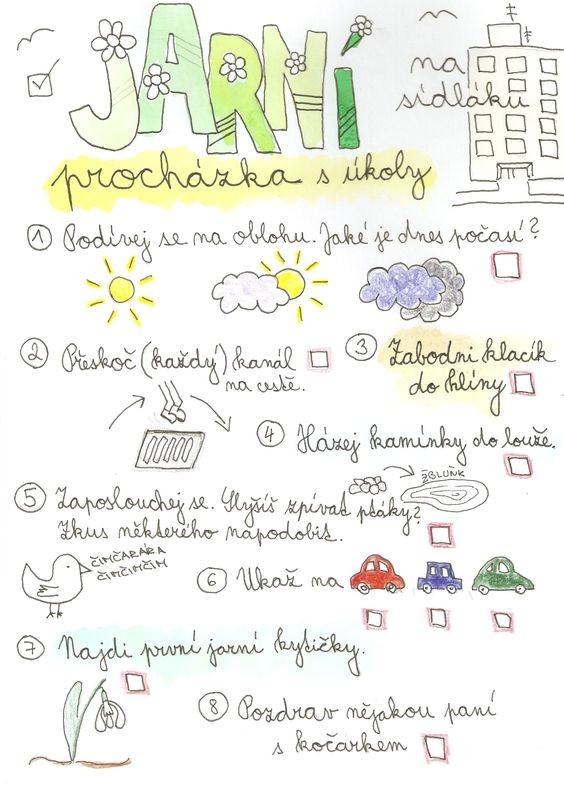 JARNÍ
na
sídláku
procházka s úkoly
1 Podívej se na oblohu. Jaké je dnes počasí?
2 Přeskoč (každý) kanál
na cestě.
3 Zabodni klacík
do hlíny
4 Házej kamínky do louže.
ŽBLUNK
5 Zaposlouchej se. Slyšíš zpívat ptáky?
Zkus některého napodobit.
ČIMČARARA
ČIMČIMČIM
6 Ukaž na
7 Najdi první jarní kytičky.
8 Pozdrav nějakou paní
s kočárkem